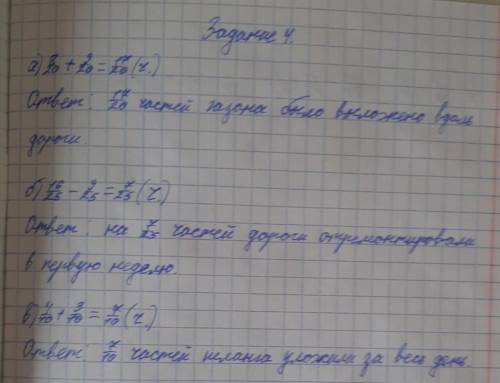 Задание 4.
а) 8/20 + 9/20 = 17/20 (ч.)
Ответ: 17/20 частей газона было выложено вдоль
дороги.
б) 16/25 - 9/25 = 7/25 (ч.)
Ответ: на 7/25 частей дороги отремонтировали
в первую неделю.
в) 4/10 + 3/10 = 7/10 (ч.)
Ответ: 7/10 частей шланга уложили за весь день.